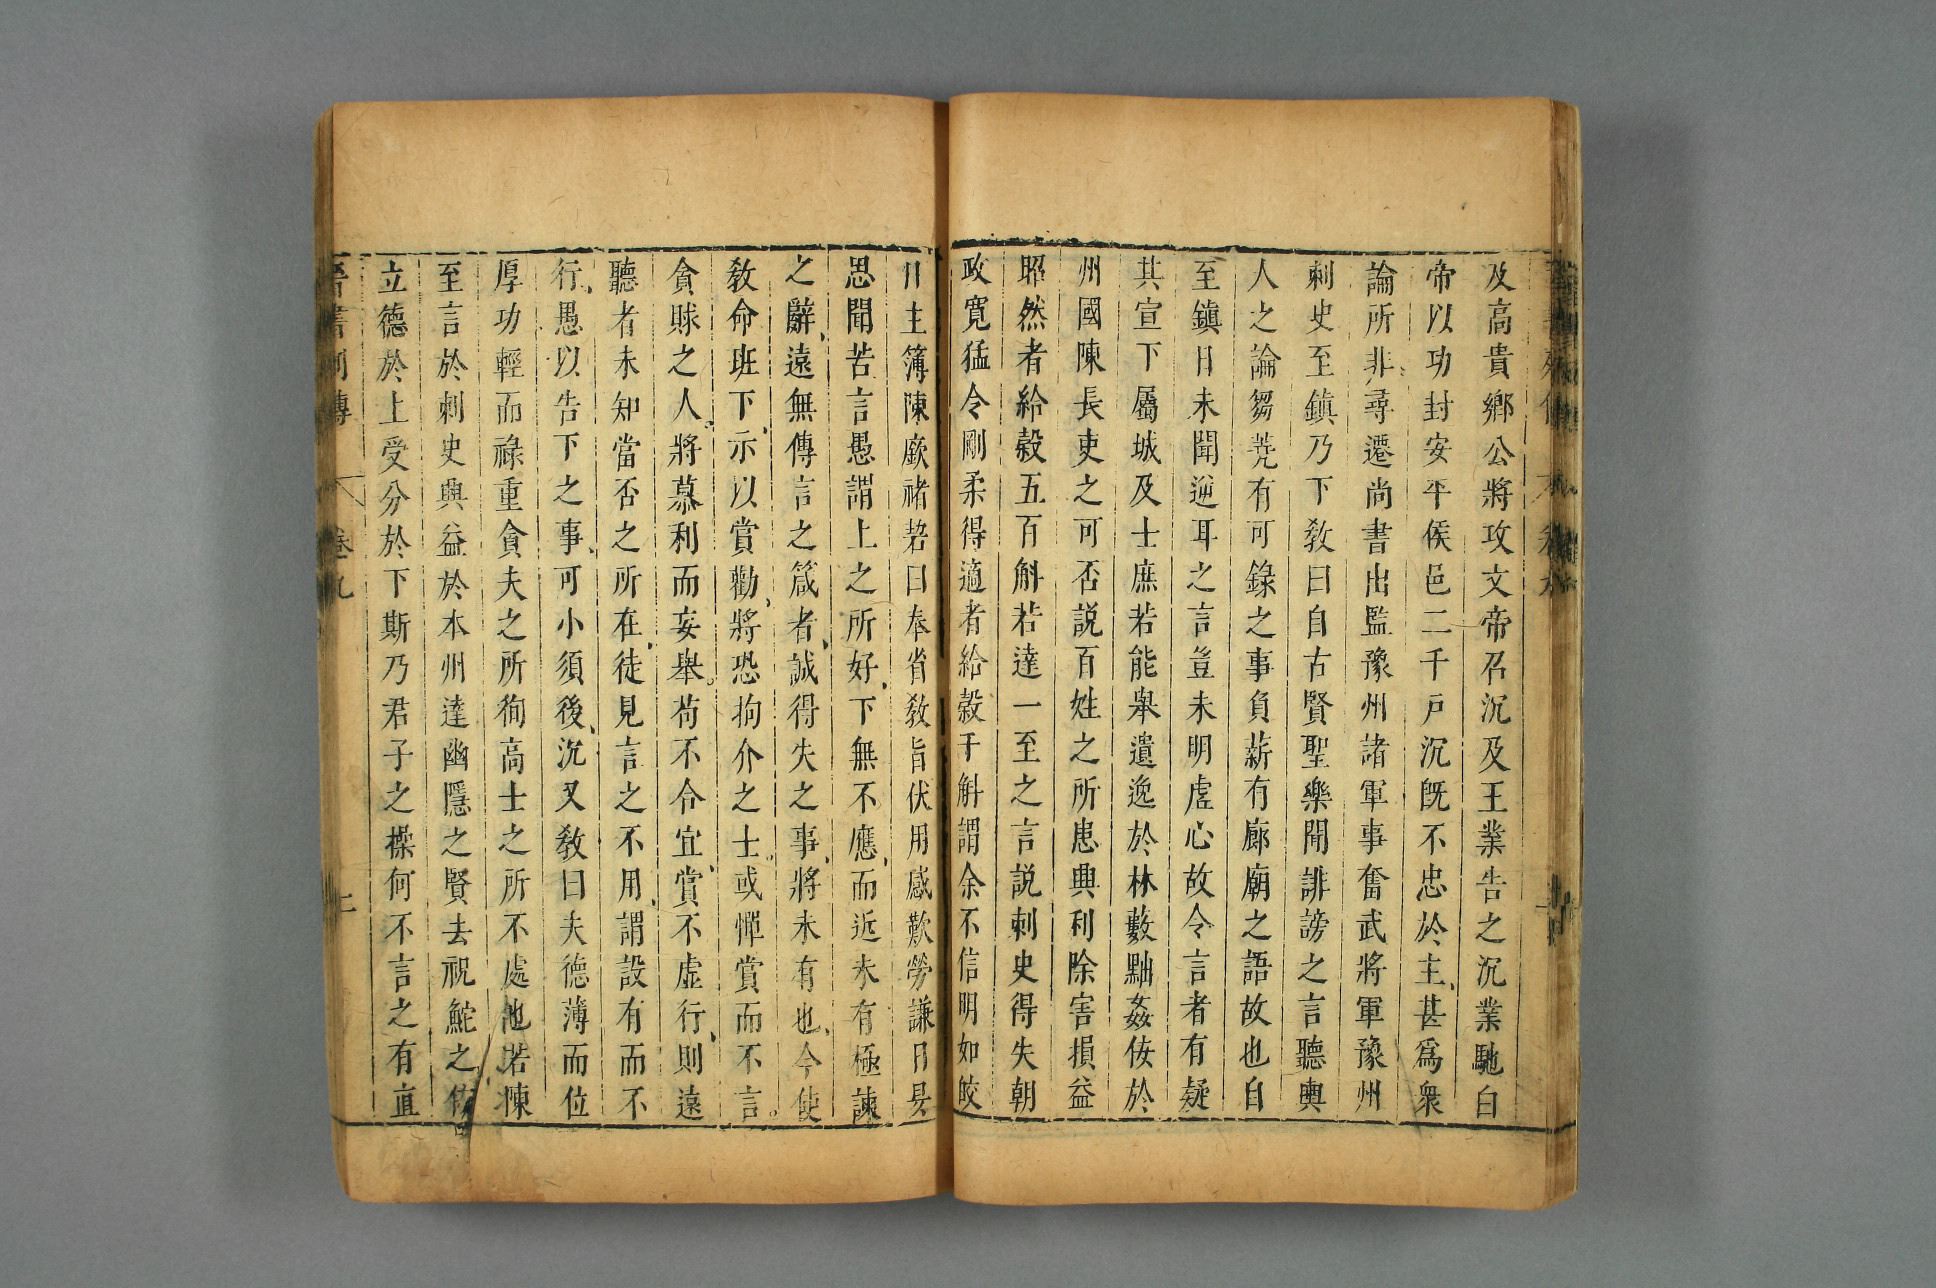 及高貴鄉公將攻文帝召沉及王業告之沉業馳白
帝以功封安平侯邑二千戸沉旣不忠於主甚爲衆
論所非尋遷尚書出監豫州諸軍事奮武將軍豫州
刺史至鎮乃下敎曰自古賢聖樂聞誹謗之言聽輿
人之論芻蕘有可錄之事負薪有廊廟之語故也自
至鎮日未聞逆耳之言豈未明虛心故令言者有疑
其宣下屬城及士庶若能舉遺逸於林藪黜姦佞於
州國陳長吏之可否說百姓之所患興利除害損益
昭然者給穀五百斛若達一至之言說刺史得失朝
政寬猛令剛柔得適者給穀千斛謂余不信明如皎
日主簿陳廞禇䂮曰奉省敎旨伏用感歎勞謙日昃
思聞苦言愚謂上之所好下無不應而近未有極諫
之辭遠無傳言之箴者誠得失之事將未有也今使
敎命班下示以賞勸將恐拘介之士或憚賞而不言
貪賕之人將慕利而妄舉苟不合宜賞不虛行則遠
聽者未知當否之所在徒見言之不用謂設有而不
行愚以告下之事可小須後沉又敎曰夫德薄而位
厚功輕而祿重貪夫之所徇高士之所不處也若陳
至言於刺史興益於本州達幽隱之賢去祝鮀之佞
立德於上受分於下斯乃君子之操何不言之有直
晉書列傳 卷九